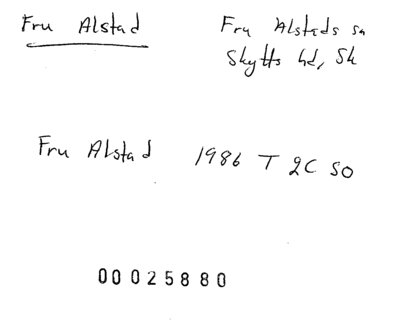 Fru Alstad
Fru Alstads sn
Skytts hd, Sk
Fru Alstad 1986 T 2C SO
00025880